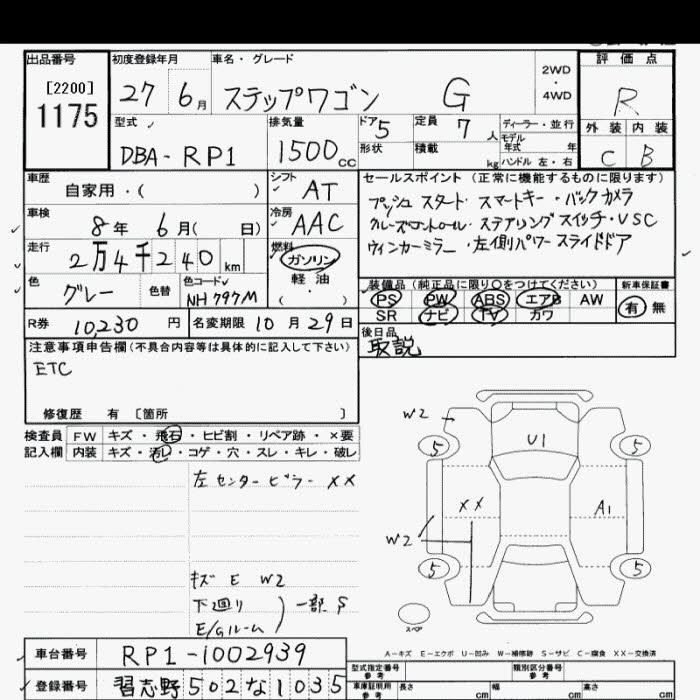 出品番号 初度登録年月 車名・グレード 2WD・4WD 評価点
[2200]
1175
27 6月 ステップワゴン G R
型式 排気量 ドア 5 定員 7人 ディーラー・並行 外装 内装
DBA-RP1 1500cc 形状 積載 kg モデル年式 年 ハンドル 左・右 C B
車歴 シフト セールスポイント(正常に機能するものに限ります)
自家用・( ) AT
プッシュスタート スマートキー・バックカメラ
車検 冷房
8年 6月( 日) AAC
クルーズコントロール・ステアリングスイッチ・VSC
走行 燃料
2万4千240km ガソリン
ウィンカーミラー・左側パワースライドドア
色 色替 色コード 軽油
グレー NH797M ( ・ )
装備品(純正品に限り○をつけてください) 新車保証書
PS PW ABS エアB AW 有・無
SR ナビ TV カワ
R券 10,230円 名変期限 10月29日
後日品
取説
注意事項申告欄(不具合内容等は具体的に記入して下さい)
ETC
修復歴 有 [箇所 ]
検査員 FW キズ・飛石・ヒビ割・リペア跡・×要
記入欄 内装 キズ・汚れ・コゲ・穴・スレ・キレ・破レ
左センターピラー XX
W2
5 U1 5
XX A1
W2
5 5
スペア
キズ E W2
下廻り
E/Gルーム
一部 S
A-キズ E-エクボ U-凹み W-補修跡 S-サビ C-腐食 XX-交換済
車台番号 RP1-1002939
登録番号 習志野502な1035
型式指定番号 参考 類別区分番号 参考
車庫証明用 参考 長さ cm 幅 cm 高さ cm